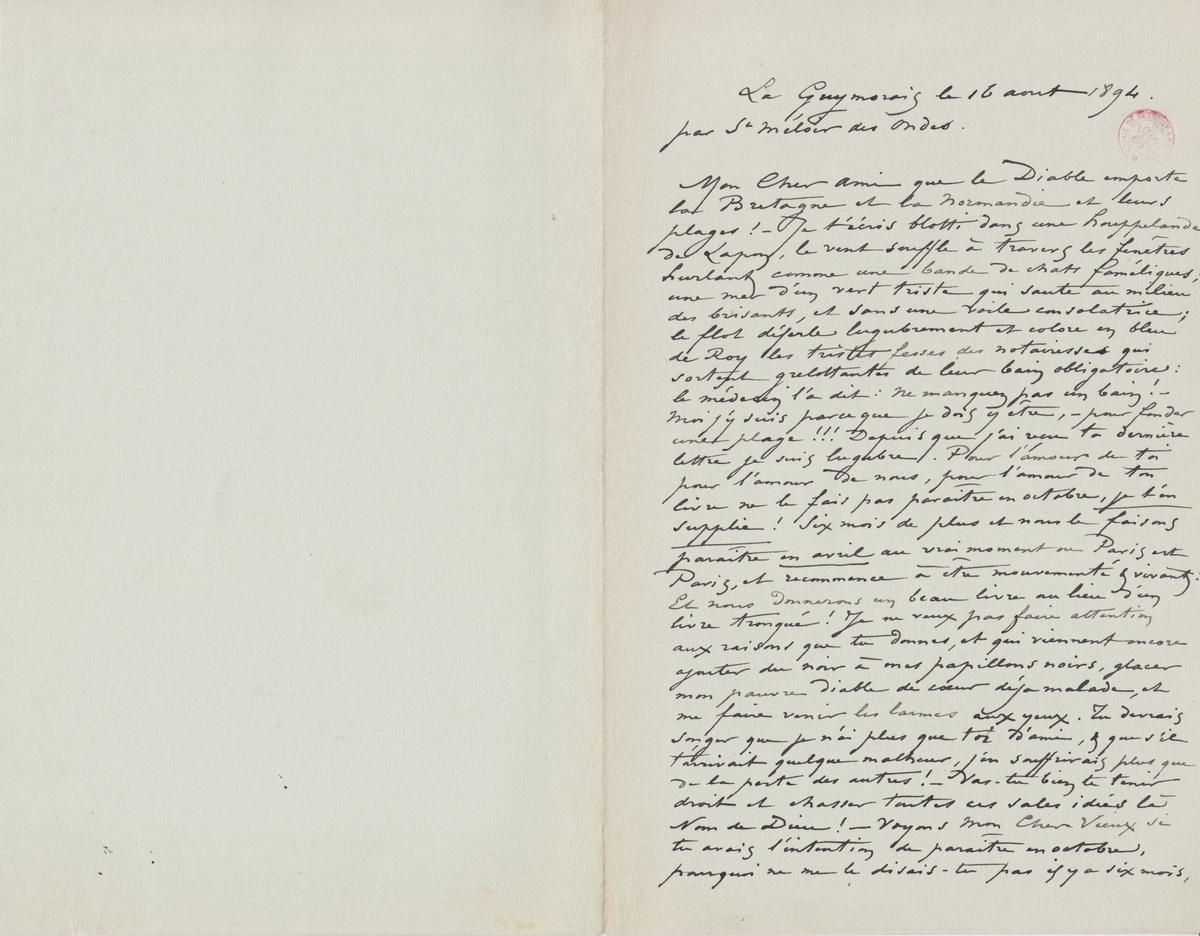 La Guymorais le 16 aout 1894.
par St Méloir des Ondes.
Mon Cher Ami que le Diable emporte
la Bretagne et la Normandie et leurs
plages ! — Je t'écris blotti dans une houppelande
de Lapon, le vent souffle à travers les fenêtres
hurlant comme une bande de chats faméliques,
une mer d'un vert triste qui saute au milieu
des brisants, et sans une voile consolatrice ;
le flot déferle lugubrement et colore en bleu
de Roy les tristes fesses des notairesses qui
sortent grelottantes de leur bain obligatoire :
le médecin l'a dit : ne manquez pas un bain ! —
Moi j'y suis parce que je dois y être, — pour fonder
une plage !!! Depuis que j'ai reçu ta dernière
lettre je suis lugubre. Pour l'amour de toi
pour l'amour de nous, pour l'amour de ton
livre ne le fais pas paraître en octobre, je t'en
supplie ! Six mois de plus et nous le faisons
paraître en avril au vrai moment ou Paris est
Paris, et recommence à être mouvementé & vivant :
Et nous donnerons un beau livre au lieu d'un
livre tronqué ! Je ne veux pas faire attention
aux raisons que tu donnes, et qui viennent encore
ajouter du noir à mes papillons noirs, glacer
mon pauvre diable de cœur déja malade, et
me faire venir les larmes aux yeux. Tu devrais
songer que je n'ai plus que toi d'ami, & que s'il
t'arrivait quelque malheur, j'en souffrirais plus que
de la perte des autres ! — Vas-tu bien te tenir
droit et chasser toutes ces sales idées là
Nom de Dieu ! — Voyons Mon Cher Vieux si
tu avais l'intention de paraître en octobre,
pourquoi ne me le disais-tu pas il y a six mois,